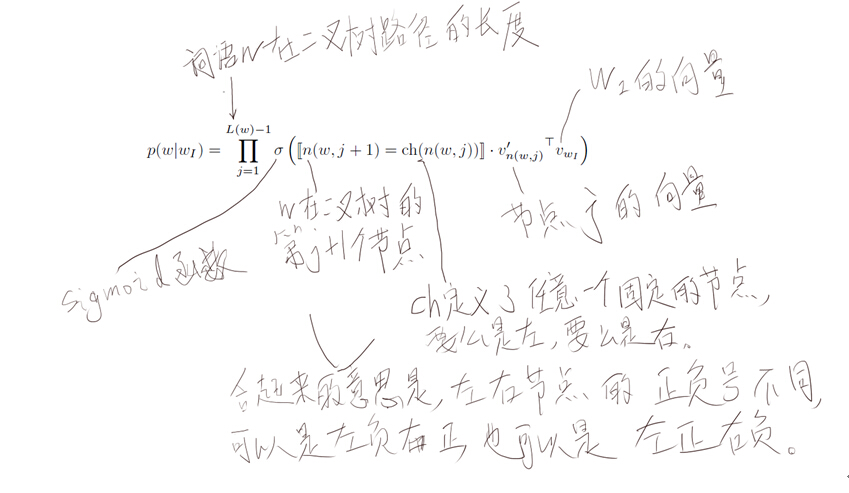 词语w在二叉树路径的长度
w_I的向量
p(w|w_I) = \prod_{j=1}^{L(w)-1} σ(⟦n(w, j+1) = ch(n(w, j))⟧ · v'_{n(w,j)}^⊤ v_{w_I})
w在二叉树的
第j+1个节点
节点j的向量
sigmoid函数
ch定义了任意一个固定的节点,
要么是左,要么是右。
合起来的意思是,左右节点的正负号不同,
可以是左负右正,也可以是左正右负。
1